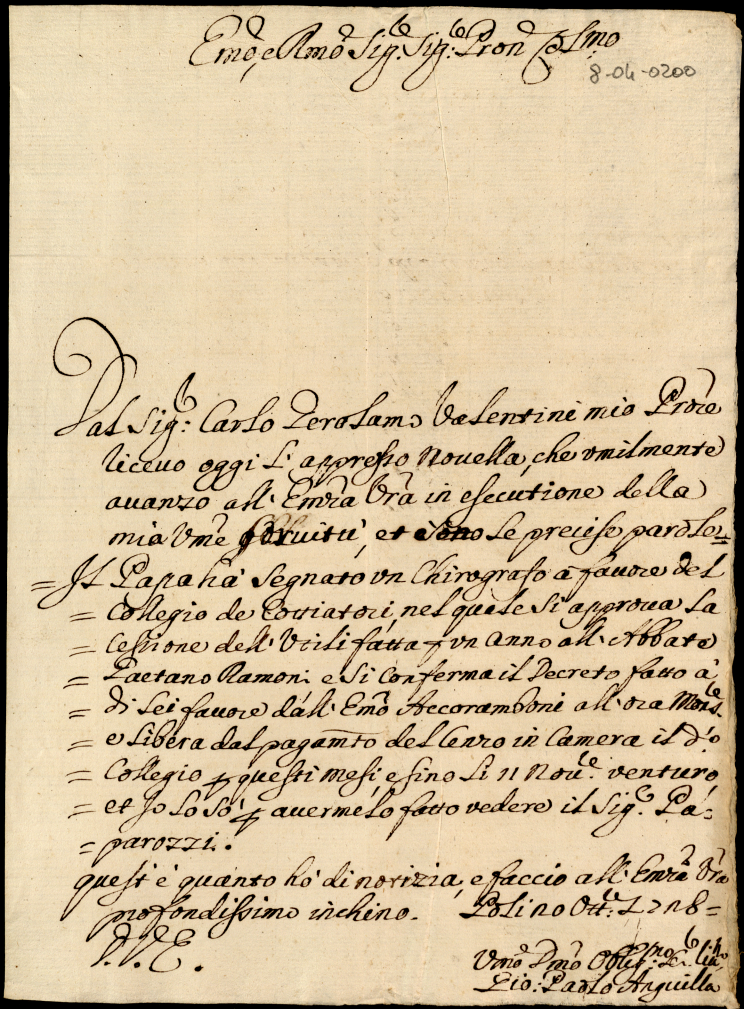 Emo, e Rmo Sig.re Sig.re Pron Colmo
8-04-0200
Dal Sig.re Carlo Gerolamo Valentini mio Prore
ricevo oggi l'appresso Novella, che umilmente
avanzo all'Emza Vra in esecutione della
mia Ume servitù, et sono le precise parole=
= Il Papa hà segnato un Chirografo à favore del
= Collegio de Cottiatori, nel quale si approva la
= Cessione dell'Utili fatta p un anno all'Abbate
= Gaetano Ramoni e si conferma il Decreto fatto à
= di lei favore dall'Emo Accoramboni all'ora Mons.re
= e libera dal pagamto del Censo in Camera il do
= Collegio p questi mesi, e sino li 11 Nov.e venturo
= et Io lo so' p avermelo fatto vedere il Sig.re Pa=
= parozzi.
quest'è quanto hò di notizia, e faccio all'Emza Vra
profondissimo inchino. Polino Ott.e
V.E.
Umo Dmo Oblig.mo
Gio: Paolo Anguilla